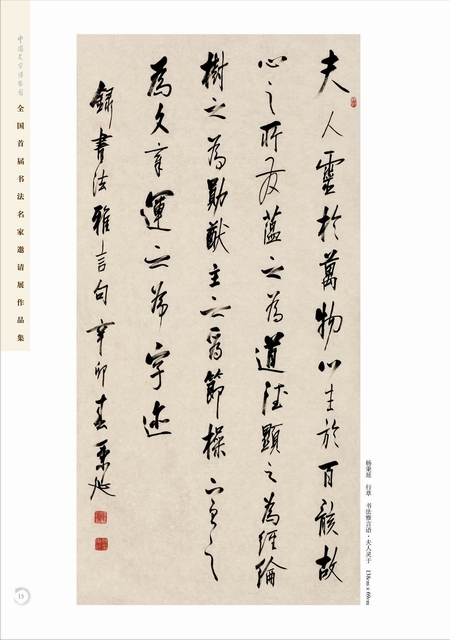 中国文字博物馆
全国首届书法名家邀请展作品集
夫人靈於萬物心主於百骸故
心之所發蘊之為道德顯之為經綸
樹之為勛猷立之為節操宣之
為文章運之為字迹
錄書法雅言句辛卯春秉延
杨秉延 行草 书法雅言语·夫人灵于 138cm x 69cm
15